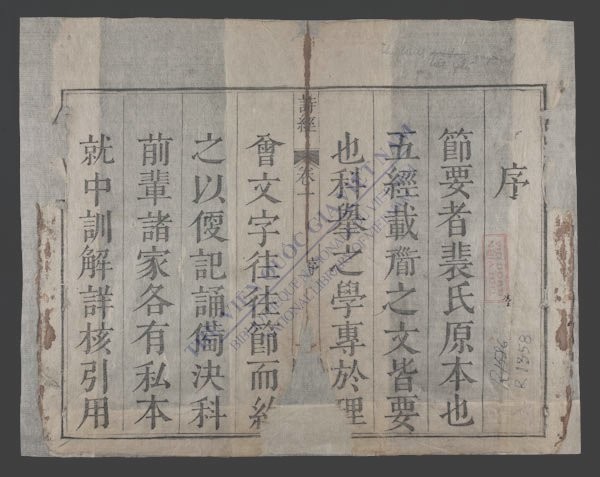 序
節要者裴氏原本也
五經載之文皆要
也科舉之學專於理
詩經 卷一 序
會文字往往節而約
之以便記誦備決科
前輩諸家各有私本
就中訓解詳核引用
THƯ VIỆN QUỐC GIA VIỆT NAM
NATIONAL LIBRARY OF VIETNAM
R.1358